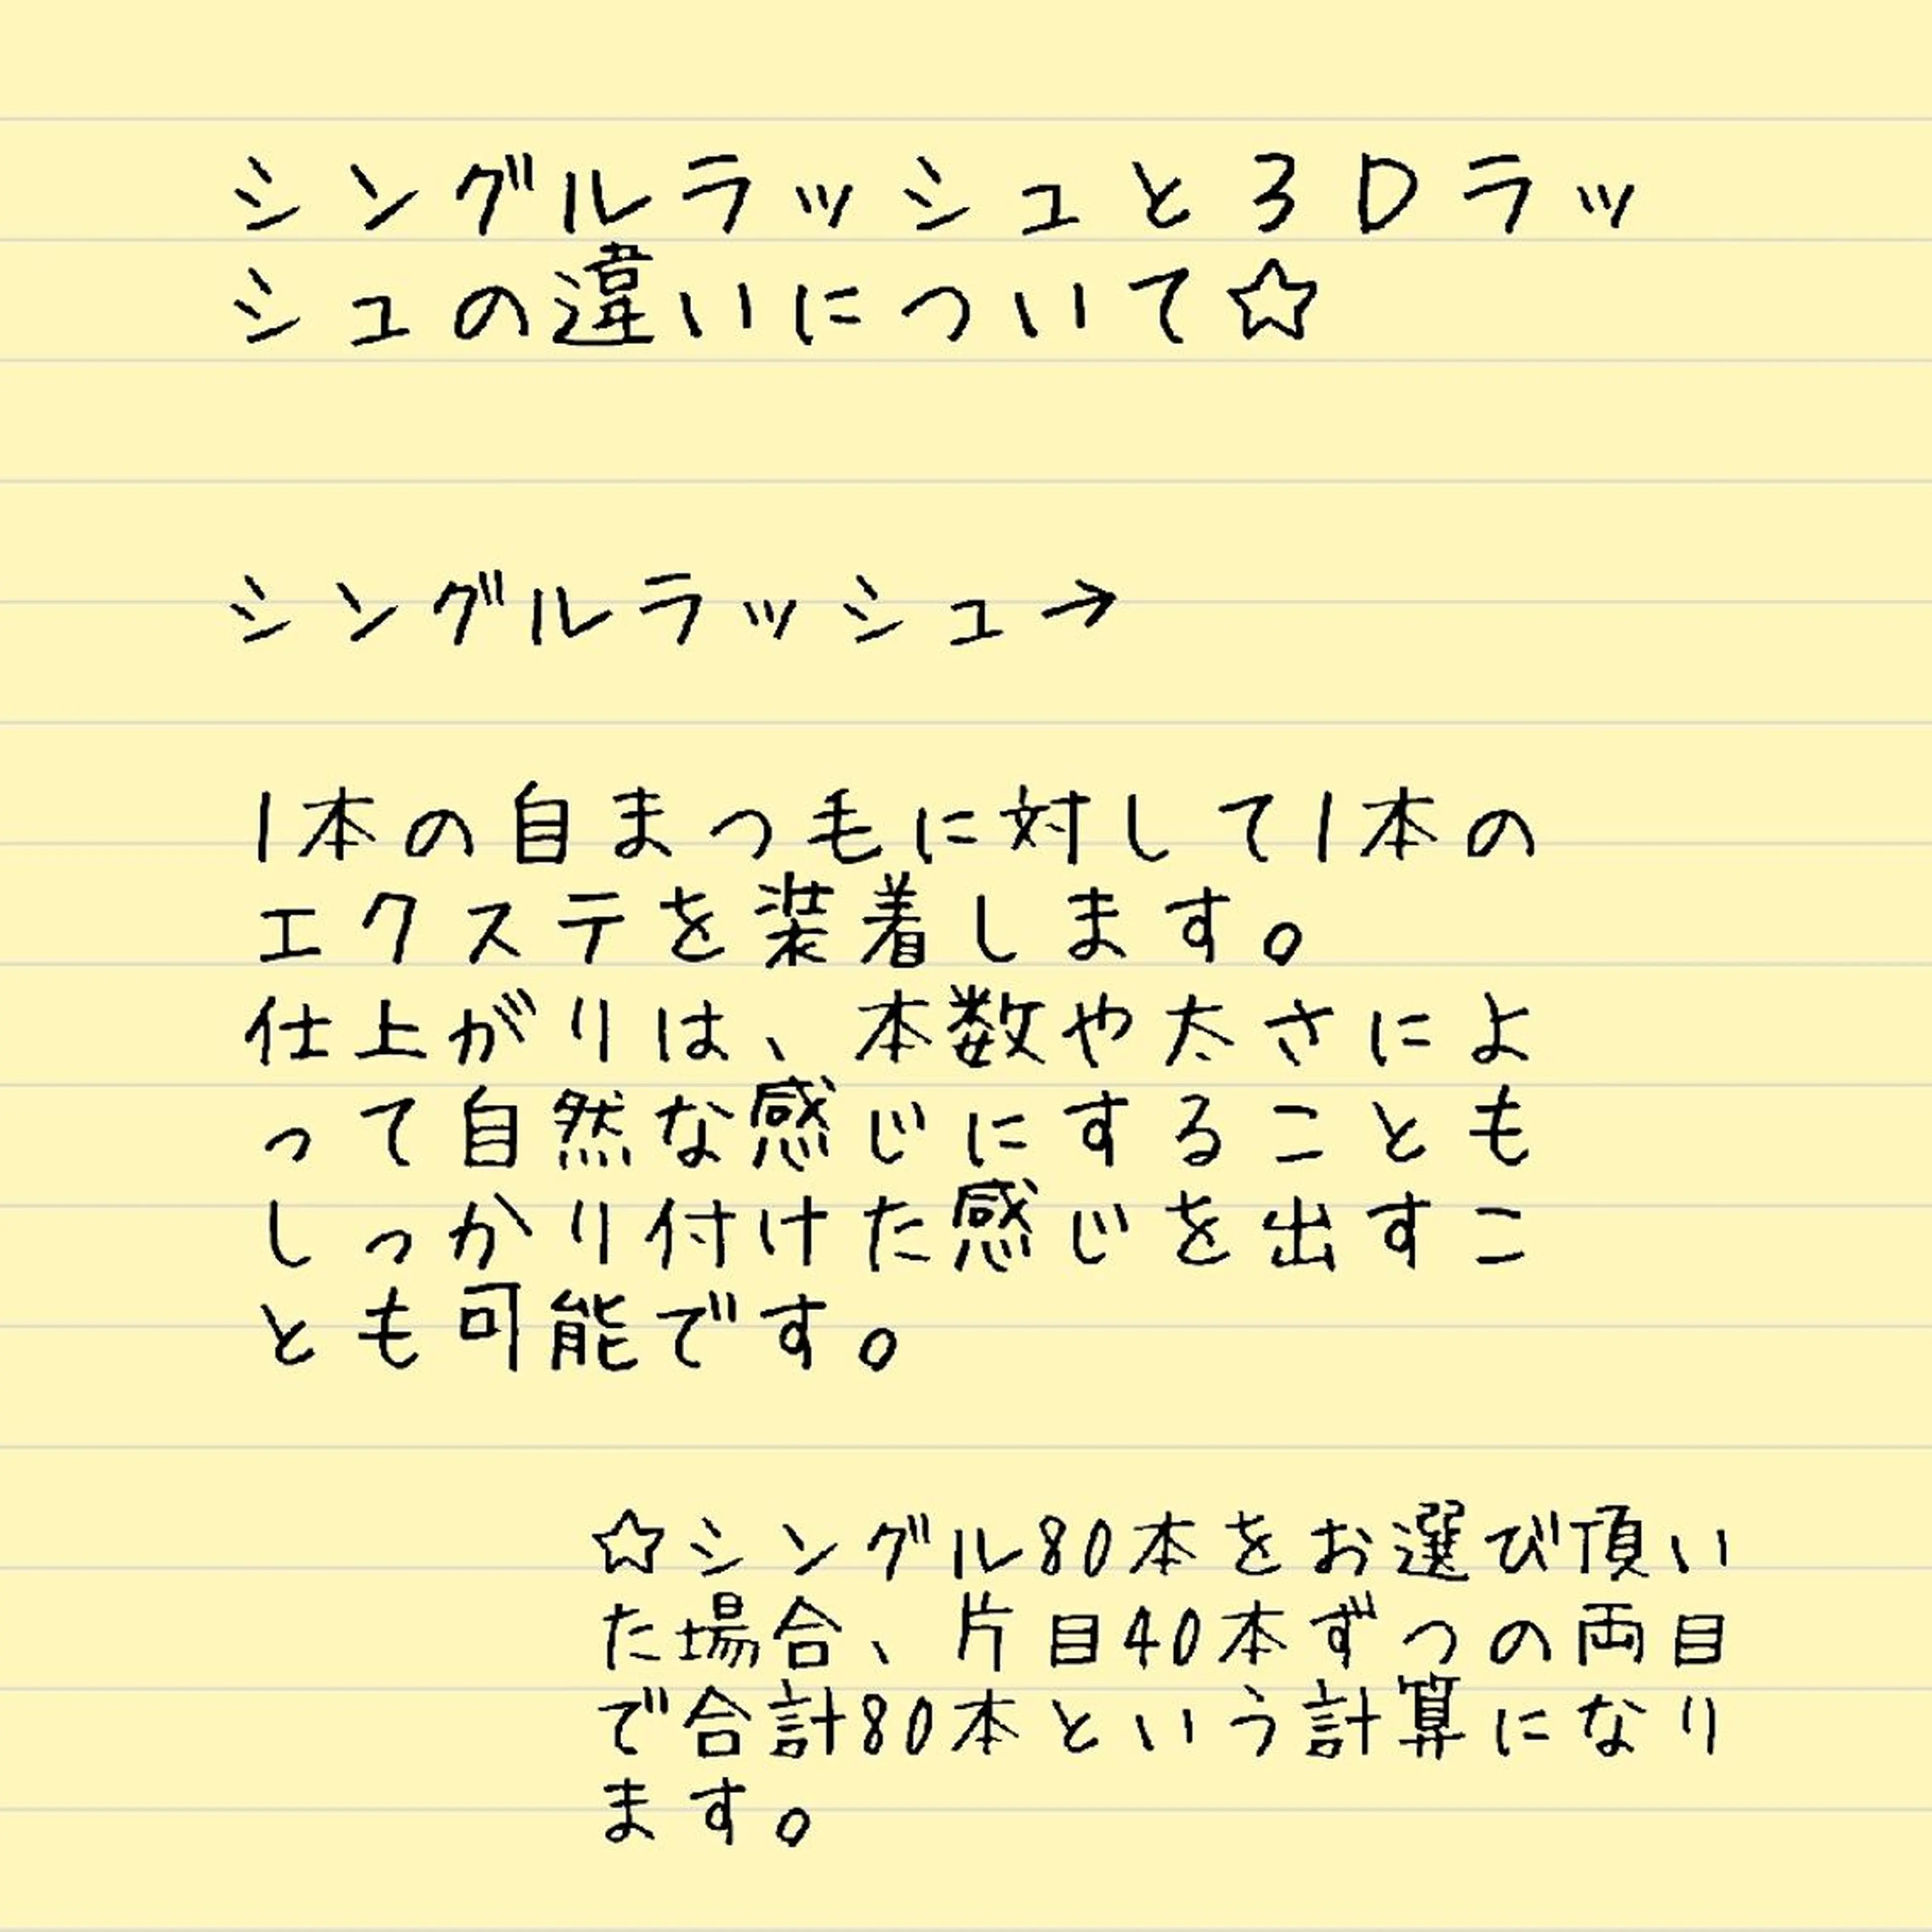 シングルラッシュと3Dラッ
シュの違いについて☆
シングルラッシュ→
1本の自まつ毛に対して1本の
エクステを装着します。
仕上がりは、本数や太さによ
って自然な感じにすることも
しっかり付けた感じを出すこ
とも可能です。
☆シングル80本をお選び頂い
た場合、片目40本ずつの両目
で合計80本という計算になり
ます。